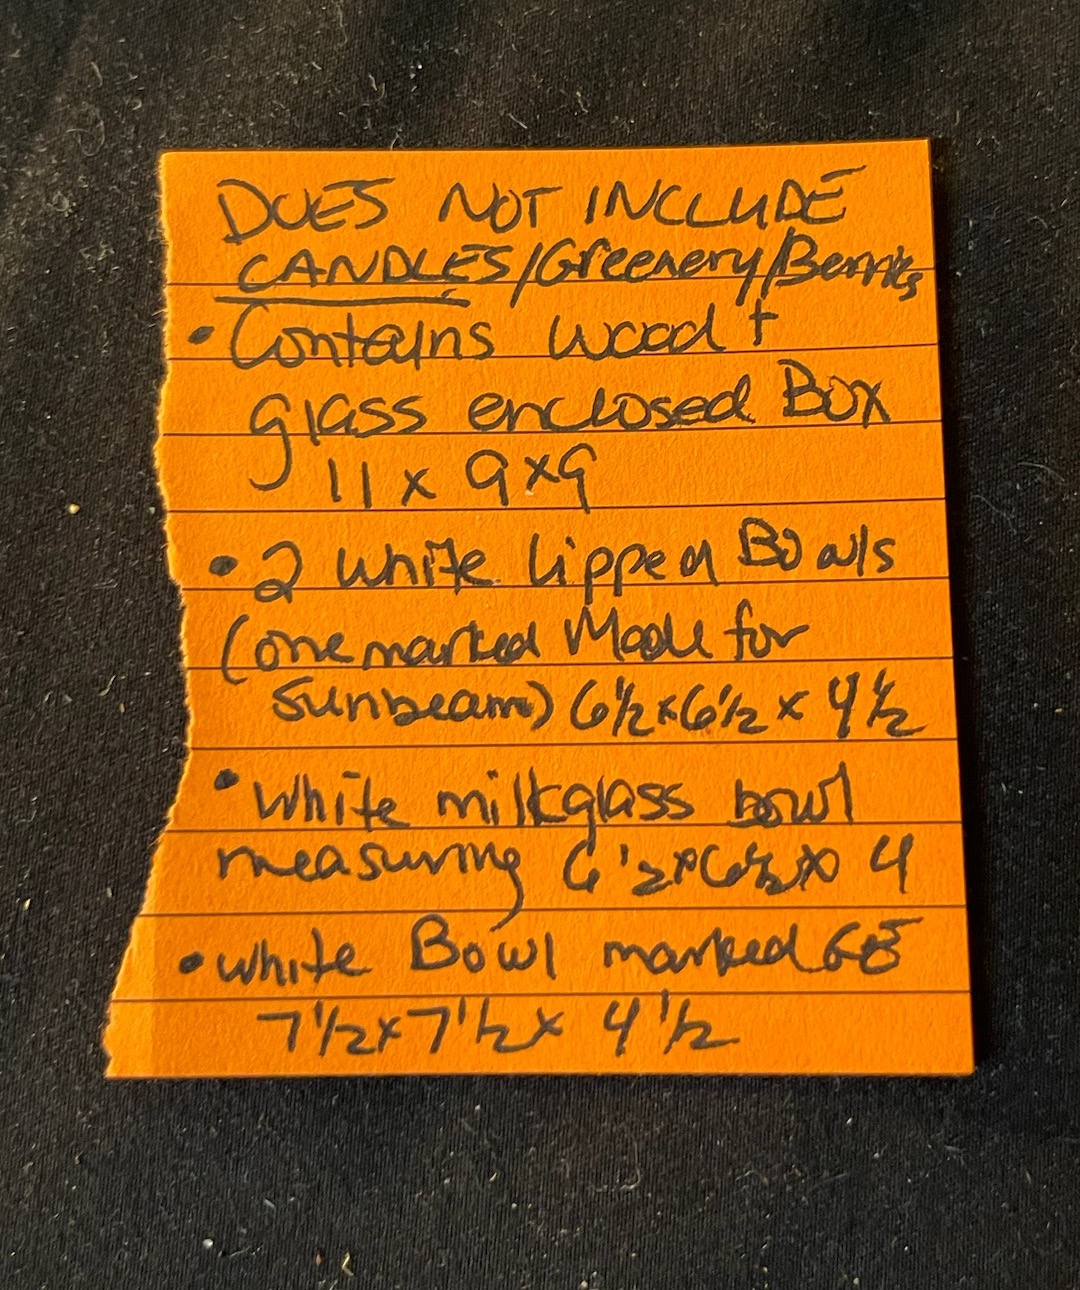 DOES NOT INCLUDE
CANDLES/Greenery/Berries
• Contains wood +
glass enclosed Box
11 x 9 x 9
• 2 white lipped Bowls
(one marked Made for
Sunbeam) 6 1/2 x 6 1/2 x 4 1/2
• white milkglass bowl
measuring 6 1/2 x 6 1/2 x 4
• white Bowl marked
7 1/2 x 7 1/2 x 4 1/2